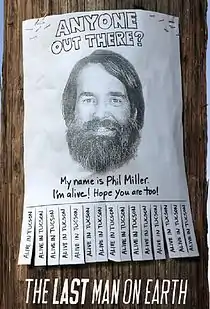 ANYONE
OUT THERE?
My name is Phil Miller.
I'm alive! Hope you are too!
ALIVE IN TUCSON
ALIVE IN TUCSON
ALIVE IN TUCSON
ALIVE IN TUCSON
ALIVE IN TUCSON
ALIVE IN TUCSON
ALIVE IN TUCSON
ALIVE IN TUCSON
ALIVE IN TUCSON
ALIVE IN TUCSON
ALIVE IN TUCSON
THE LAST MAN ON EARTH